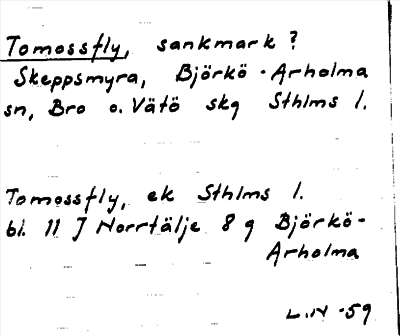 Tomossfly, sankmark?
Skeppsmyra, Björkö-Arholma
sn, Bro o. Vätö skg Sthlms l.
Tomossfly, ek Sthlms l.
bl. 11 J Norrtälje 8 g Björkö-
Arholma
L.N -59